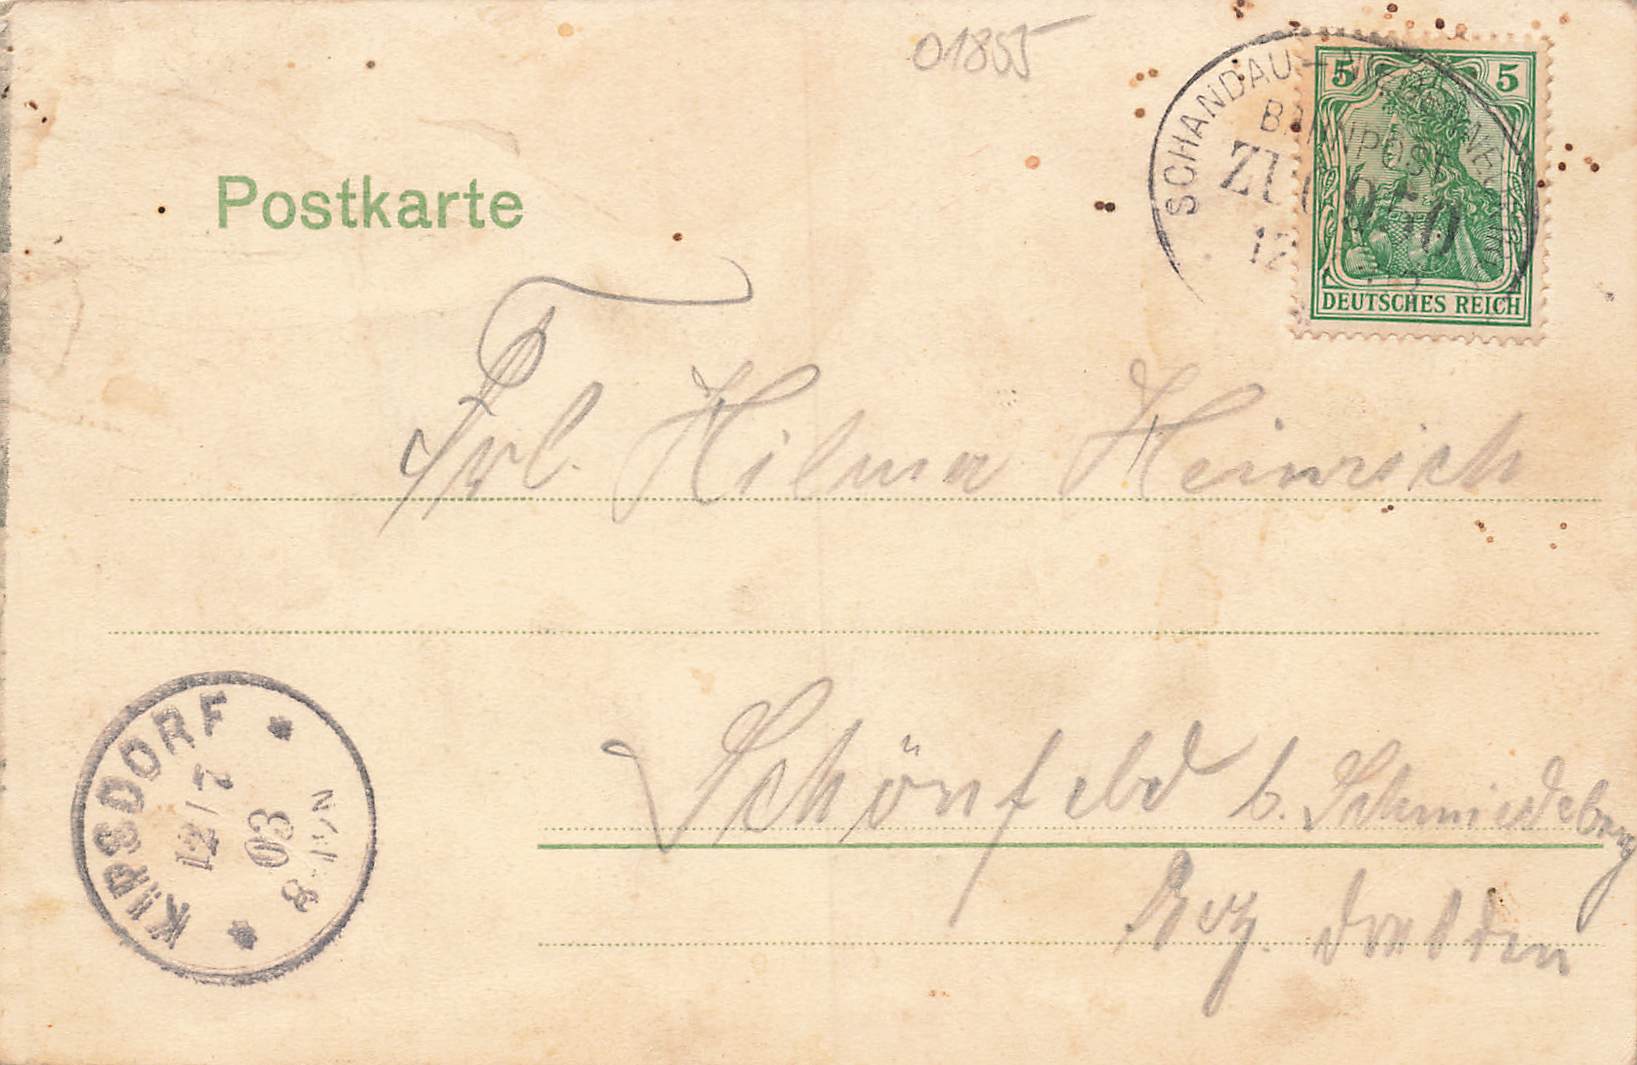 01855
5 5
SCHANDAU-
BAHNPOST
ZUG 950
12
DEUTSCHES REICH
Postkarte
Frl. Hilma Heinrich
Schönfeld b. Schmiedeberg
Bez. Dresden
KIPSDORF
12/7
03
8-
N